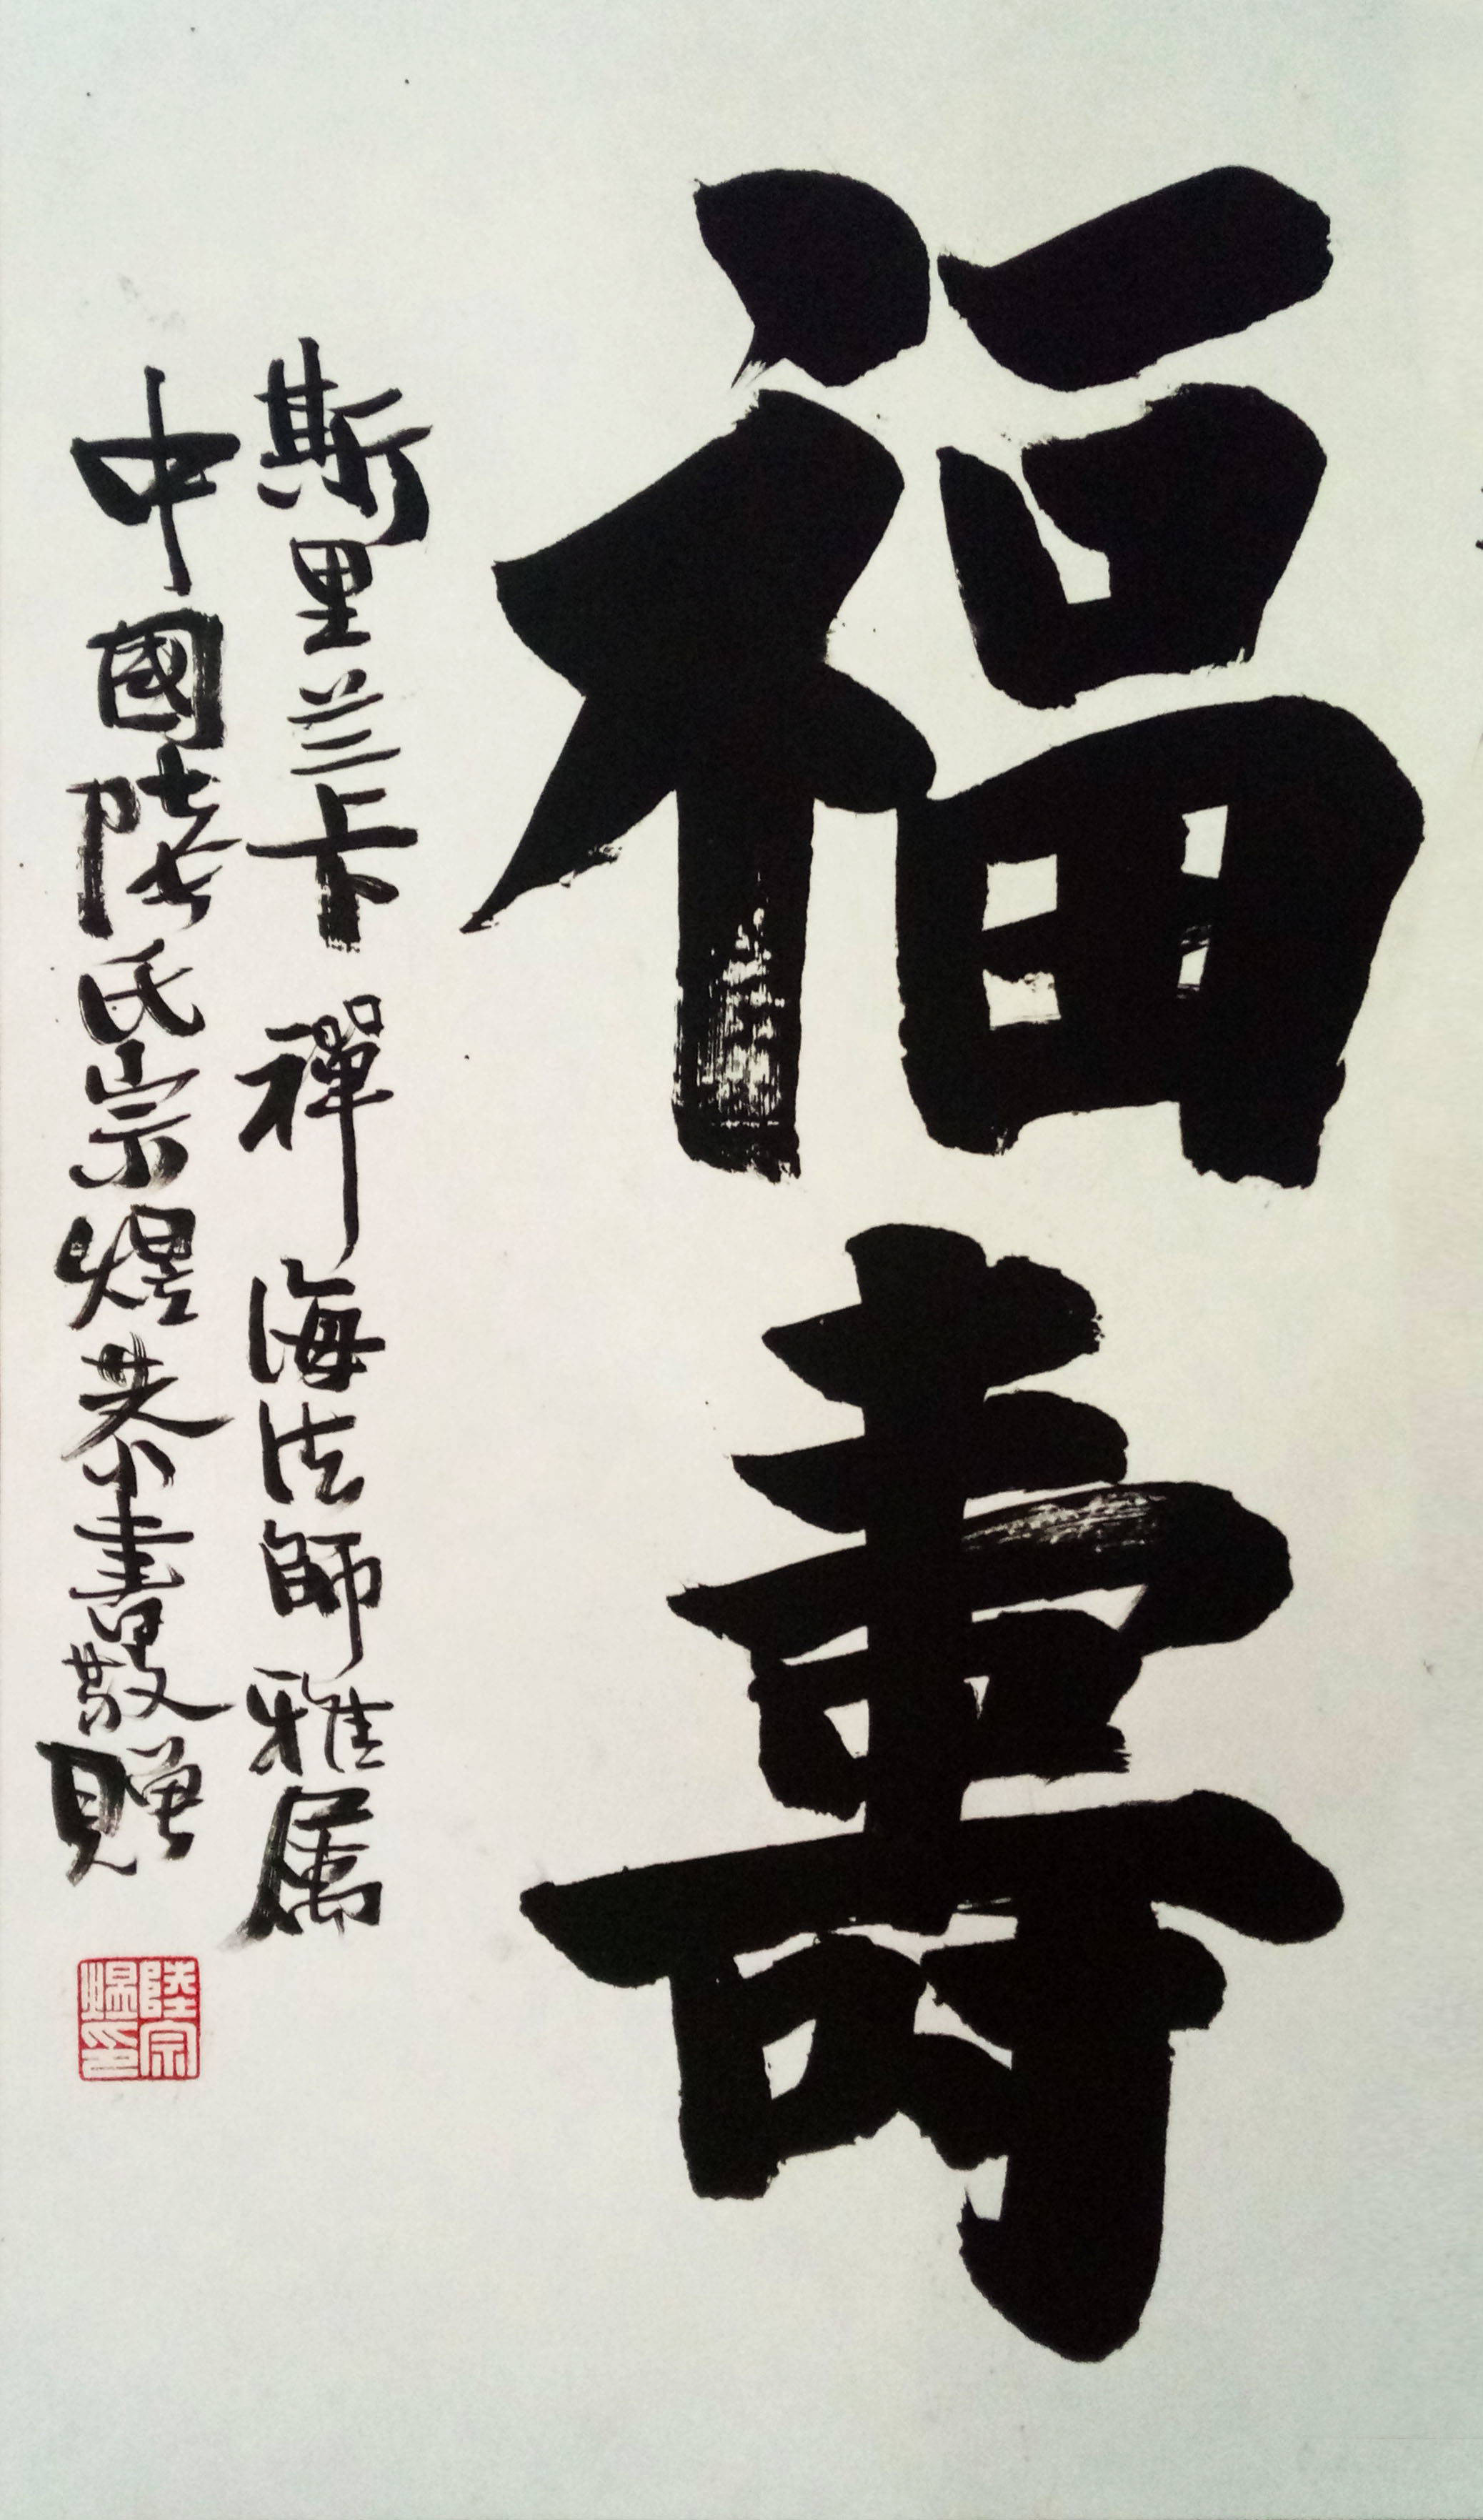 福壽
斯里兰卡 禪海法師雅属
中國陸氏宗煜恭書敬贈
陸宗煜印